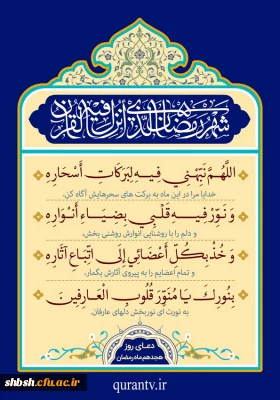 شهر رمضان الذي أنزل فيه القرآن
اللَّهُمَّ نَبِّهْنِي فِيهِ لِبَرَكَاتِ أَسْحَارِهِ
خدایا مرا در این ماه به برکت های سحرهایش آگاه کن،
وَ نَوِّرْ فِيهِ قَلْبِي بِضِيَاءِ أَنْوَارِهِ
و دلم را با روشنایی انوارش روشنی بخش،
وَ خُذْ بِكُلِّ أَعْضَائِي إِلَى اتِّبَاعِ آثَارِهِ
و تمام اعضایم را به پیروی آثارش بگمار،
بِنُورِكَ يَا مُنَوِّرَ قُلُوبِ الْعَارِفِينَ
به نورت ای نوربخش دلهای عارفان.
دعای روز
هجدهم ماه رمضان
shbsh.cfu.ac.ir
qurantv.ir